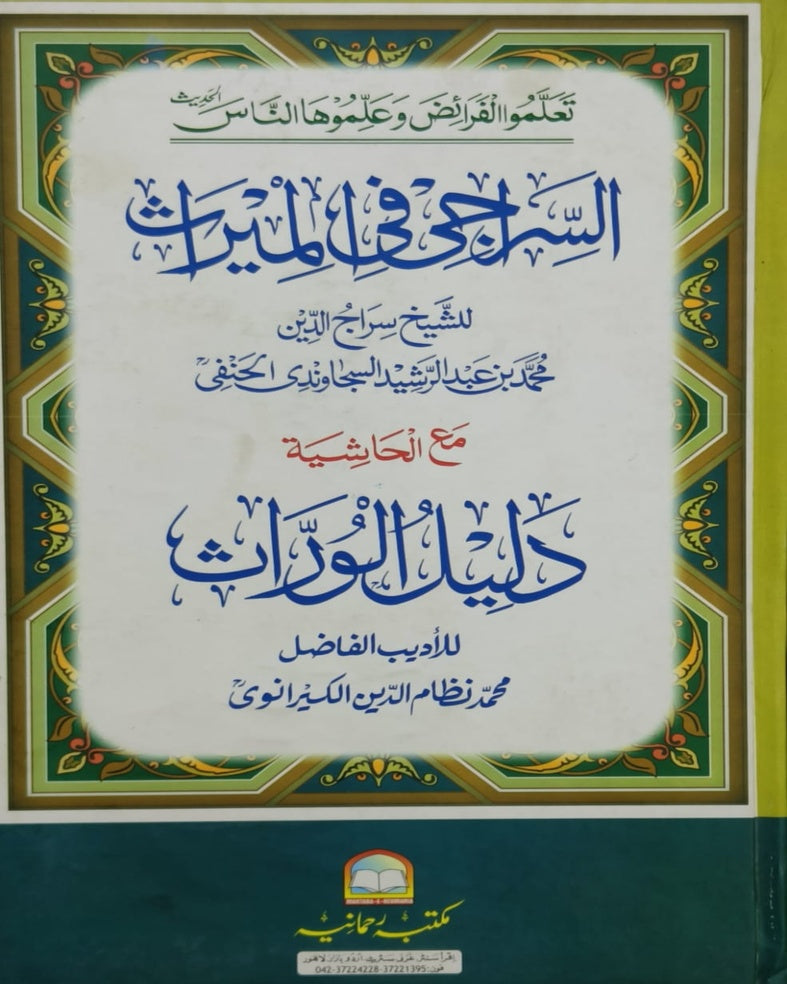 تَعَلَّمُوا الْفَرَائِضَ وَعَلِّمُوْهَا النَّاسَ الحدیث
السِّرَاجِیْ فِی الْمِیْرَاثِ
للشَّیخ سِرَاجُ الدِّیْن
مُحَمَّد بن عَبد الرَّشِیْد السجاوندی الحَنفی
مَع الْحَاشِیَة
دَلِیْلُ الْوُرَّاث
للأدیب الفاضل
محمّد نظام الدّین الکیرانوی
MAKTABA-E-REHMANIA
مکتبہ رحمانیہ
اِقرأ سنٹر غزنی سٹریٹ اُردو بازار لاهور
فون: 042-37224228-37221395